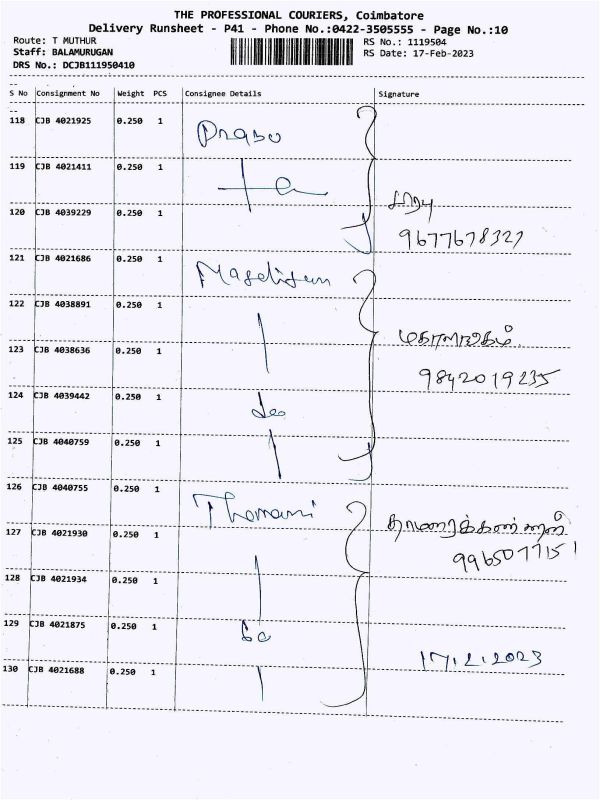 THE PROFESSIONAL COURIERS, Coimbatore
Delivery Runsheet - P41 - Phone No.:0422-3505555 - Page No.:10
Route: T MUTHUR RS No.: 1119504
Staff: BALAMURUGAN RS Date: 17-Feb-2023
DRS No.: DCJB111950410
S No Consignment No Weight PCS Consignee Details Signature
118 CJB 4021925 0.250 1 Prabu
119 CJB 4021411 0.250 1
120 CJB 4039229 0.250 1
9677678327
121 CJB 4021686 0.250 1
122 CJB 4038891 0.250 1
123 CJB 4038636 0.250 1
9842019235
124 CJB 4039442 0.250 1 do
125 CJB 4040759 0.250 1
126 CJB 4040755 0.250 1
127 CJB 4021930 0.250 1
9965077151
128 CJB 4021934 0.250 1
129 CJB 4021875 0.250 1 do
17.2.2023
130 CJB 4021688 0.250 1